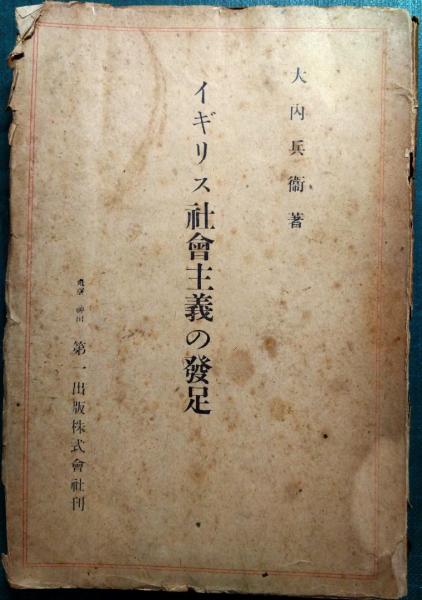 大內兵衞著
イギリス社會主義の發足
東京 神田 第一出版株式會社刊